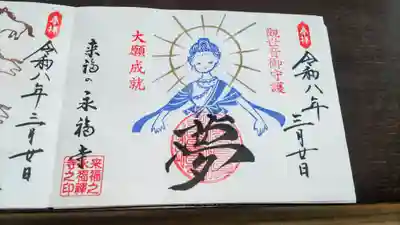 奉拝
令和八年
三月廿日
観世音御守護
夢
大願成就
来福の永福寺
来福之
永福禅
寺之印
奉拝
令和八年三月廿日